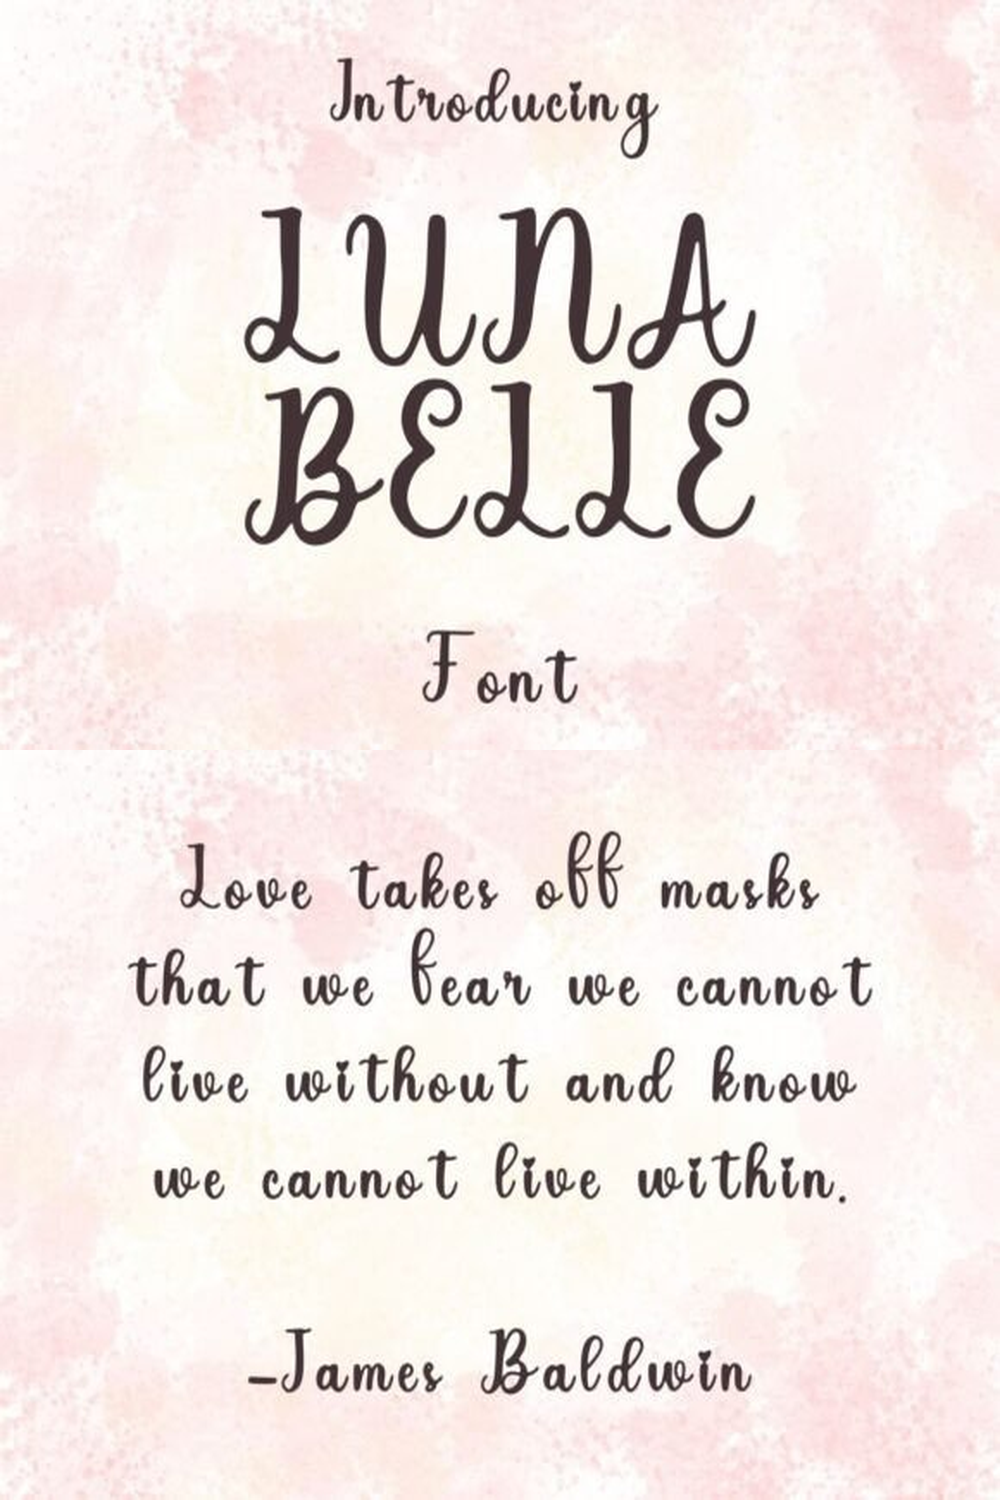 Introducing
LUNA
BELLE
Font
Love takes off masks
that we fear we cannot
live without and know
we cannot live within.
-James Baldwin